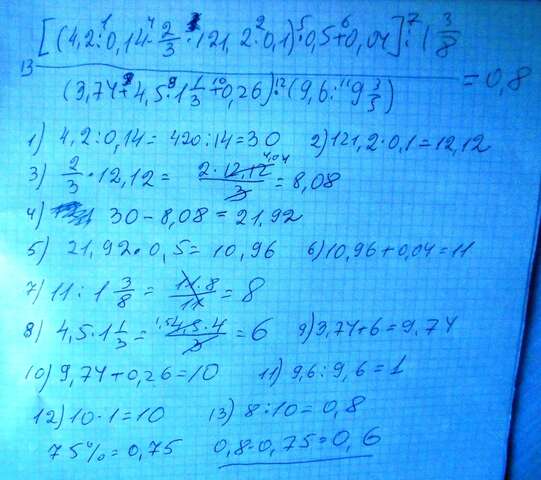 [(4,2:0,14-2/3·121,2·0,1)·0,5+0,04]:1 3/8
13 ———————— = 0,8
(3,74+4,5·1 1/3+0,26):(9,6:9 3/5)
1) 4,2:0,14=420:14=30 2) 121,2·0,1=12,12
3) 2/3·12,12= 2·12,12/3 4,04 =8,08
4) 30-8,08=21,92
5) 21,92·0,5=10,96 6) 10,96+0,04=11
7) 11:1 3/8= 11·8/11 =8
8) 4,5·1 1/3= 1,5 4,5·4/3 =6 9) 3,74+6=9,74
10) 9,74+0,26=10 11) 9,6:9,6=1
12) 10·1=10 13) 8:10=0,8
75%=0,75 0,8·0,75=0,6